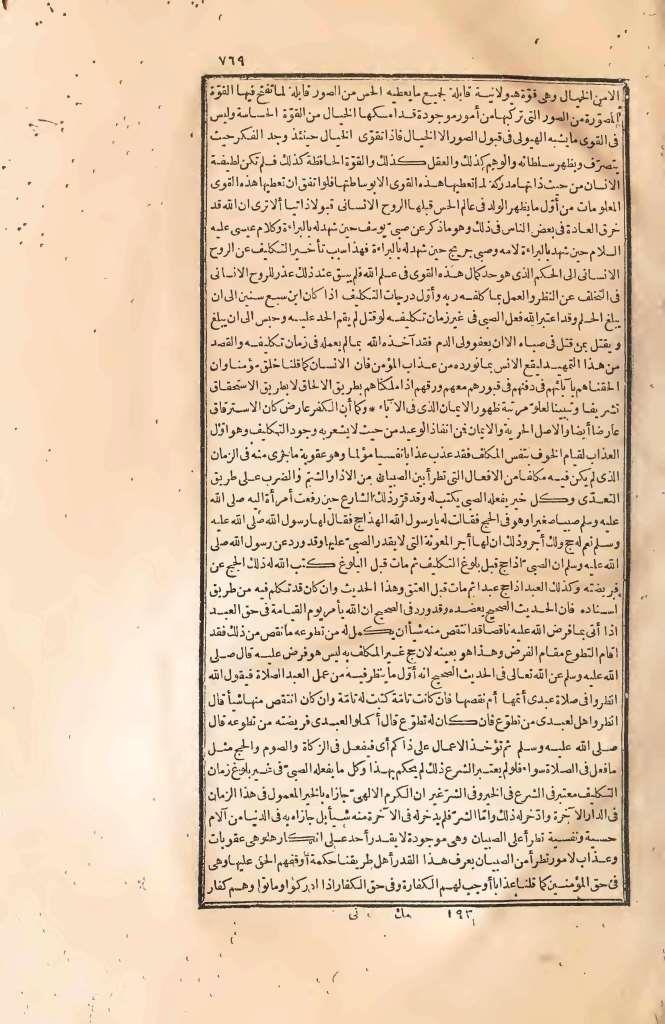 ٧٦٩
الا من الخيال وهى قوّة هيولانية قابلة لجميع ما يعطيه الحس من الصور قابلة لما تفتح فيها القوّة
المصوّرة من الصور التى تركبها من أمور موجودة قد امسكها الخيال من القوّة الحساسة وليس
فى القوى ما يشبه الهيولى فى قبول الصور الا الخيال فاذا تقوى الخيال حينئذ وجد الفكر حيث
يتصرّف ويظهر سلطانه والوهم كذلك والعقل كذلك والقوّة الحافظة كذلك فلم تكن لطيفة
الانسان من حيث ذاتها مدركة لما تعطيها هذه القوى الا بوساطتها فلو اتفق ان تعطيها هذه القوى
المعلومات من أوّل ما يظهر الولد فى عالم الحس قبلها الروح الانسانى قبولا ذاتيا ألا ترى ان الله قد
خرق العادة فى بعض الناس فى ذلك وهو ما ذكر عن صبىّ يوسف حين شهد له بالبراءة وكلام عيسى عليه
السلام حين شهد بالبراءة لامه وصبى جريج حين شهد له بالبراءة فهذا سبب تأخير التكليف عن الروح
الانسانى الى الحكم الذى هو حد كمال هذه القوى فى علم الله فلم يبق عند ذلك عذر للروح الانسانى
فى التخلف عن النظر والعمل بما كلفه ربه وأوّل درجات التكليف اذا كان ابن سبع سنين الى ان
يبلغ الحلم وقد اعتبر الله فعل الصبى فى غير زمان تكليفه لو قتل لم يقم الحد عليه وحبس الى ان يبلغ
ويقتل بمن قتل فى صباه الا ان يعفو ولى الدم فقد آخذه الله بما لم يعمله فى زمان تكليفه والقصد
من هذا التمهيد ليقع الانس بما نورده من عذاب المؤمن فان الانسان كما قلنا خلق مؤمنا وان
الحقناهم بآبائهم فى دفنهم فى قبورهم معهم ورقهم اذا ملكناهم بطريق الالحاق لا بطريق الاستحقاق
تشريفا وتبيينا لعلوّ مرتبة ظهور الايمان الذى فى الآباء * وكما أن الكفر عارض كان الاسترقاق
عارضا أيضا والاصل الحرية والايمان فمن انفاذ الوعيد من حيث لا يشعر به وجود التكليف وهو أوّل
العذاب لقيام الخوف بنفس المكلف فقد عذب عذابا نفسيا مؤلما وهو عقوبة ما جرى منه فى الزمان
الذى لم يكن فيه مكلفا من الافعال التى تطرأ بين الصبيان من الاذا والشتم والضرب على طريق
التعدّى وكل خير يفعله الصبى يكتب له وقد قرّر ذلك الشارع حين رفعت امرأة اليه صلى الله
عليه وسلم صبيا صغيرا وهو فى الحج فقالت له يا رسول الله ألهذا حج فقال لها رسول الله صلى الله عليه
وسلم نعم له حج ولك أجر وذلك ان لها أجر المعونة التى لا يقدر الصبىّ عليها وقد ورد عن رسول الله صلى
الله عليه وسلم ان الصبىّ اذا حج قبل بلوغ التكليف ثم مات قبل البلوغ كتب الله له ذلك الحج عن
فريضته وكذلك العبد اذا حج عبدا ثم مات قبل العتق وهذا الحديث وان كان قد تكلم فيه من طريق
اسناده فان الحديث الصحيح يعضده وقد ورد فى الصحيح ان الله يأمر يوم القيامة فى حق العبد
اذا أتى بما فرض الله عليه ناقصا قد انتقص منه شيأ ان يكمل له من تطوعه ما نقص من ذلك فقد
اقام التطوع مقام الفرض وهذا هو بعينه لان حج غير المكلف به ليس هو فرض عليه قال صلى
الله عليه وسلم عن الله تعالى فى الحديث الصحيح انه أوّل ما ينظر فيه من عمل العبد الصلاة فيقول الله
انظروا فى صلاة عبدى أتمها أم نقصها فان كانت تامّة كتبت له تامّة وان كان انتقص منها شيأ قال
انظروا هل لعبدى من تطوّع فان كان له تطوّع قال أكملوا لعبدى فريضته من تطوعه قال
صلى الله عليه وسلم ثم تؤخذ الاعمال على ذاكم أى فيفعل فى الزكاة والصوم والحج مثل
ما فعل فى الصلاة سواء فلو لم يعتبر الشرع ذلك لم يحكم بهذا وكل ما يفعله الصبىّ فى غير بلوغ زمان
التكليف معتبر فى الشرع فى الخير وفى الشرّ غير ان الكرم الالهىّ جازاه بالخير المعمول فى هذا الزمان
فى الدار الآخرة وادّخر له ذلك وامّا الشرّ فلم يدخر له فى الآخرة منه شيأ بل جازاه به فى الدنيا من آلام
حسية ونفسية تطرأ على الصبيان وهى موجودة لا يقدر أحد على انكارها وهى عقوبات
وعذاب لامور تطرأ من الصبيان يعرف هذا القدر أهل طريقنا حكمة أوقفهم الحق عليها وهى
فى حق المؤمنين كما قلنا عذابا أوجب لهم الكفارة وفى حق الكفار اذا ادركوا وماتوا وهم كفار
١٩٣ مك نى